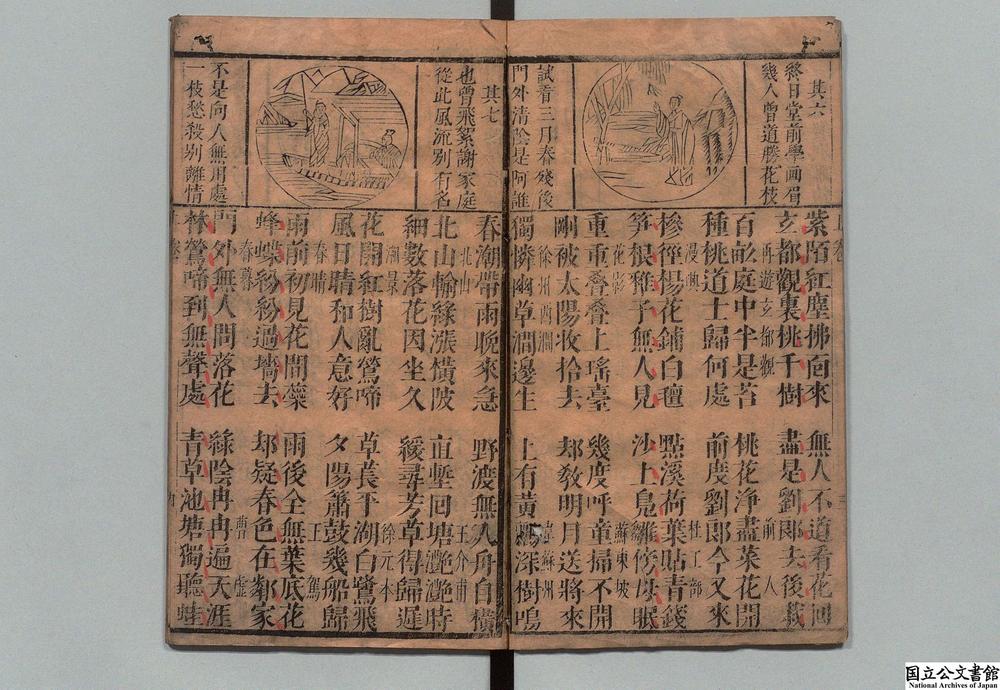 其六
終日堂前學画眉
幾人曾道勝花枝
試看三月春殘後
門外清陰是阿誰
紫陌紅塵拂面來 無人不道看花回
玄都觀裏桃千樹 盡是劉郎去後栽
再遊玄都觀 前人
百畝庭中半是苔 桃花淨盡菜花開
種桃道士歸何處 前度劉郎今又來
漫興 杜工部
糝徑楊花鋪白氊 點溪荷葉貼青錢
笋根稚子無人見 沙上鳧雛傍母眠
花影 蘇東坡
重重叠叠上瑤臺 幾度呼童掃不開
剛被太陽收拾去 却教明月送將來
徐州西澗 韋蘇州
獨憐幽草澗邊生 上有黃鸝深樹鳴
其七
也曾飛絮謝家庭
從此風流別有名
不是向人無用處
一枝愁殺別離情
春潮帶雨晚來急 野渡無人舟自橫
北山 王介甫
北山輸綠漲橫陂 直塹回塘灧灧時
細數落花因坐久 緩尋芳草得歸遲
湖景 徐元杰
花開紅樹亂鶯啼 草長平湖白鷺飛
風日晴和人意好 夕陽簫鼓幾船歸
春晴 王駕
雨前初見花間蘂 雨後全無葉底花
蜂蝶紛紛過墻去 却疑春色在鄰家
春暮 曹豳
門外無人問落花 綠陰冉冉遍天涯
林鶯啼到無聲處 青草池塘獨聽蛙
国立公文書館
National Archives of Japan